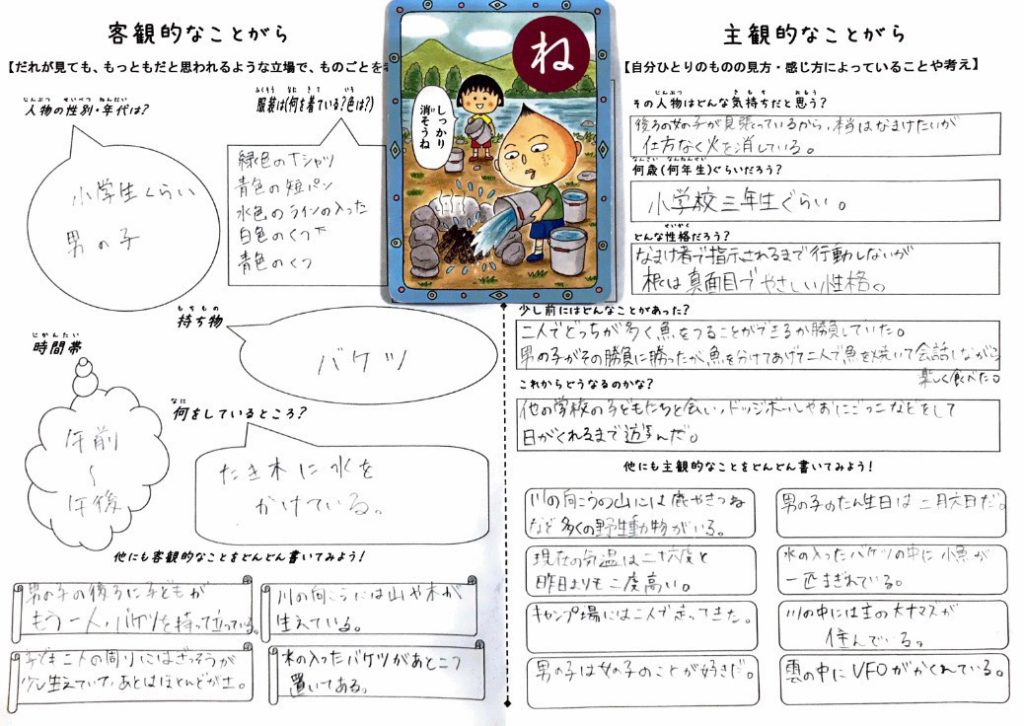 客観的なことがら
【だれが見ても、もっともだと思われるような立場で、ものごとを考
人物の性別・年代は?
小学生くらい
男の子
服装は(何を着ている?色は?)
緑色のTシャツ
青色の短パン
水色のラインの入った
白色のくつ下
青色のくつ
持ち物
バケツ
時間帯
午前
~
午後
何をしているところ?
たき木に水を
かけている。
他にも客観的なことをどんどん書いてみよう!
男の子の後ろに子どもが
もう一人、バケツを持って立っている。
川の向こうには山や木が
生えている。
子ども二人の周りにはざっそうが
少し生えていて、あとはほとんどが土。
水の入ったバケツがあと二つ
置いてある。
ね
しっかり
消そうね
主観的なことがら
【自分ひとりのものの見方・感じ方によっていることや考え】
その人物はどんな気持ちだと思う?
後ろの女の子が見張っているから、本当はなまけたいが
仕方なく火を消している。
何歳(何年生)ぐらいだろう?
小学校三年生ぐらい。
どんな性格だろう?
なまけ者で指示されるまで行動しないが
根は真面目でやさしい性格。
少し前にはどんなことがあった?
二人でどっちが多く魚をつることができるか勝負していた。
男の子がその勝負に勝ったが、魚を分けてあげて二人で魚を焼いて会話しながら
楽しく食べた。
これからどうなるのかな?
他の学校の子どもたちと会い、ドッジボールやおにごっこなどをして
日がくれるまで遊んだ。
他にも主観的なことをどんどん書いてみよう!
川の向こうの山には鹿やきつね
など多くの野生動物がいる。
男の子のたん生日は二月六日だ。
現在の気温は二十六度と
昨日よりも二度高い。
水の入ったバケツの中に小魚が
一匹まぎれている。
キャンプ場には二人で走ってきた。
川の中には主の大ナマズが
住んでいる。
男の子は女の子のことが好きだ。
雲の中にUFOがかくれている。